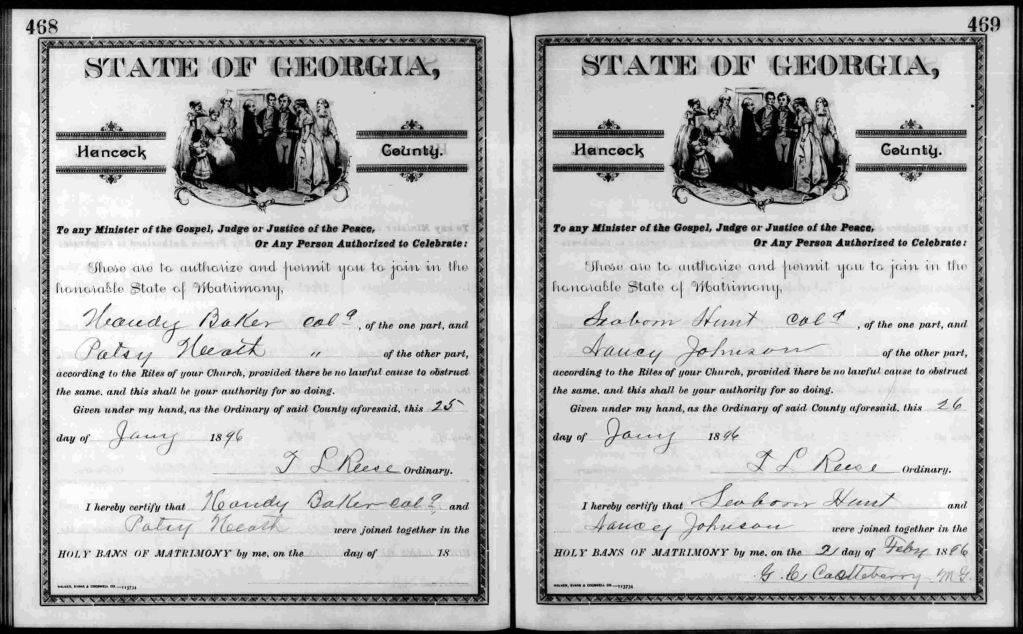 468
STATE OF GEORGIA,
Hancock County.
To any Minister of the Gospel, Judge or Justice of the Peace,
Or Any Person Authorized to Celebrate:
These are to authorize and permit you to join in the
honorable State of Matrimony,
Handy Baker Cold, of the one part, and
Patsy Heath " of the other part,
according to the Rites of your Church, provided there be no lawful cause to obstruct
the same, and this shall be your authority for so doing.
Given under my hand, as the Ordinary of said County aforesaid, this 25
day of Jany 1896
T L Reese Ordinary.
I hereby certify that Handy Baker Cold and
Patsy Heath were joined together in the
HOLY BANS OF MATRIMONY by me, on the day of 18
WALKER, EVANS & COGSWELL CO.—113734
469
STATE OF GEORGIA,
Hancock County.
To any Minister of the Gospel, Judge or Justice of the Peace,
Or Any Person Authorized to Celebrate:
These are to authorize and permit you to join in the
honorable State of Matrimony,
Seaborn Hunt Cold, of the one part, and
Nancy Johnson of the other part,
according to the Rites of your Church, provided there be no lawful cause to obstruct
the same, and this shall be your authority for so doing.
Given under my hand, as the Ordinary of said County aforesaid, this 26
day of Jany 1896
T L Reese Ordinary.
I hereby certify that Seaborn Hunt and
Nancy Johnson were joined together in the
HOLY BANS OF MATRIMONY by me, on the 2 day of Feby 1896
G. C. Castleberry M G.
WALKER, EVANS & COGSWELL CO.—113734